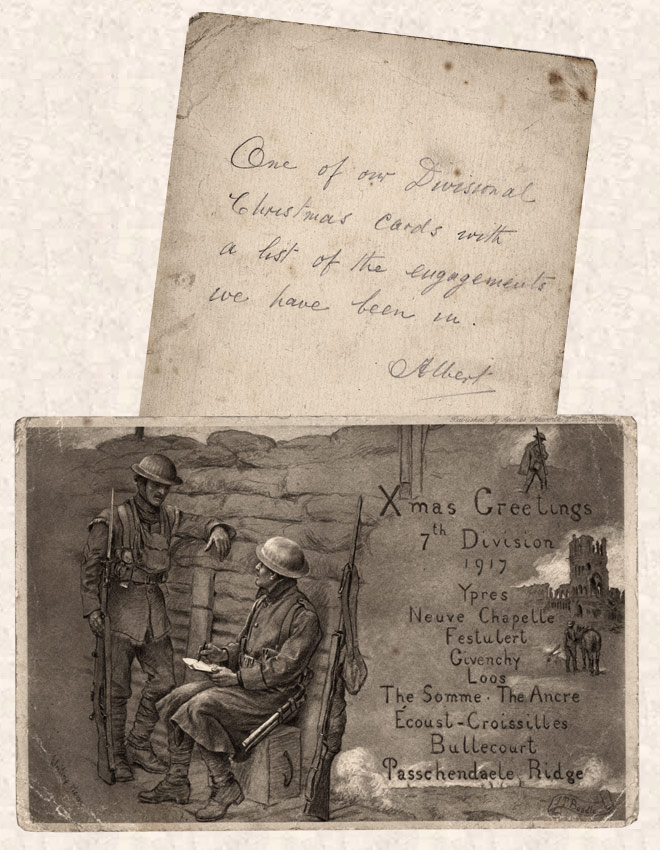 One of our Divisional
Christmas cards with
a list of the engagements
we have been in.
Albert
Xmas Greetings
7th Division
1917
Ypres
Neuve Chapelle
Festubert
Givenchy
Loos
The Somme · The Ancre
Ecoust-Croissilles
Bullecourt
Passchendaele Ridge